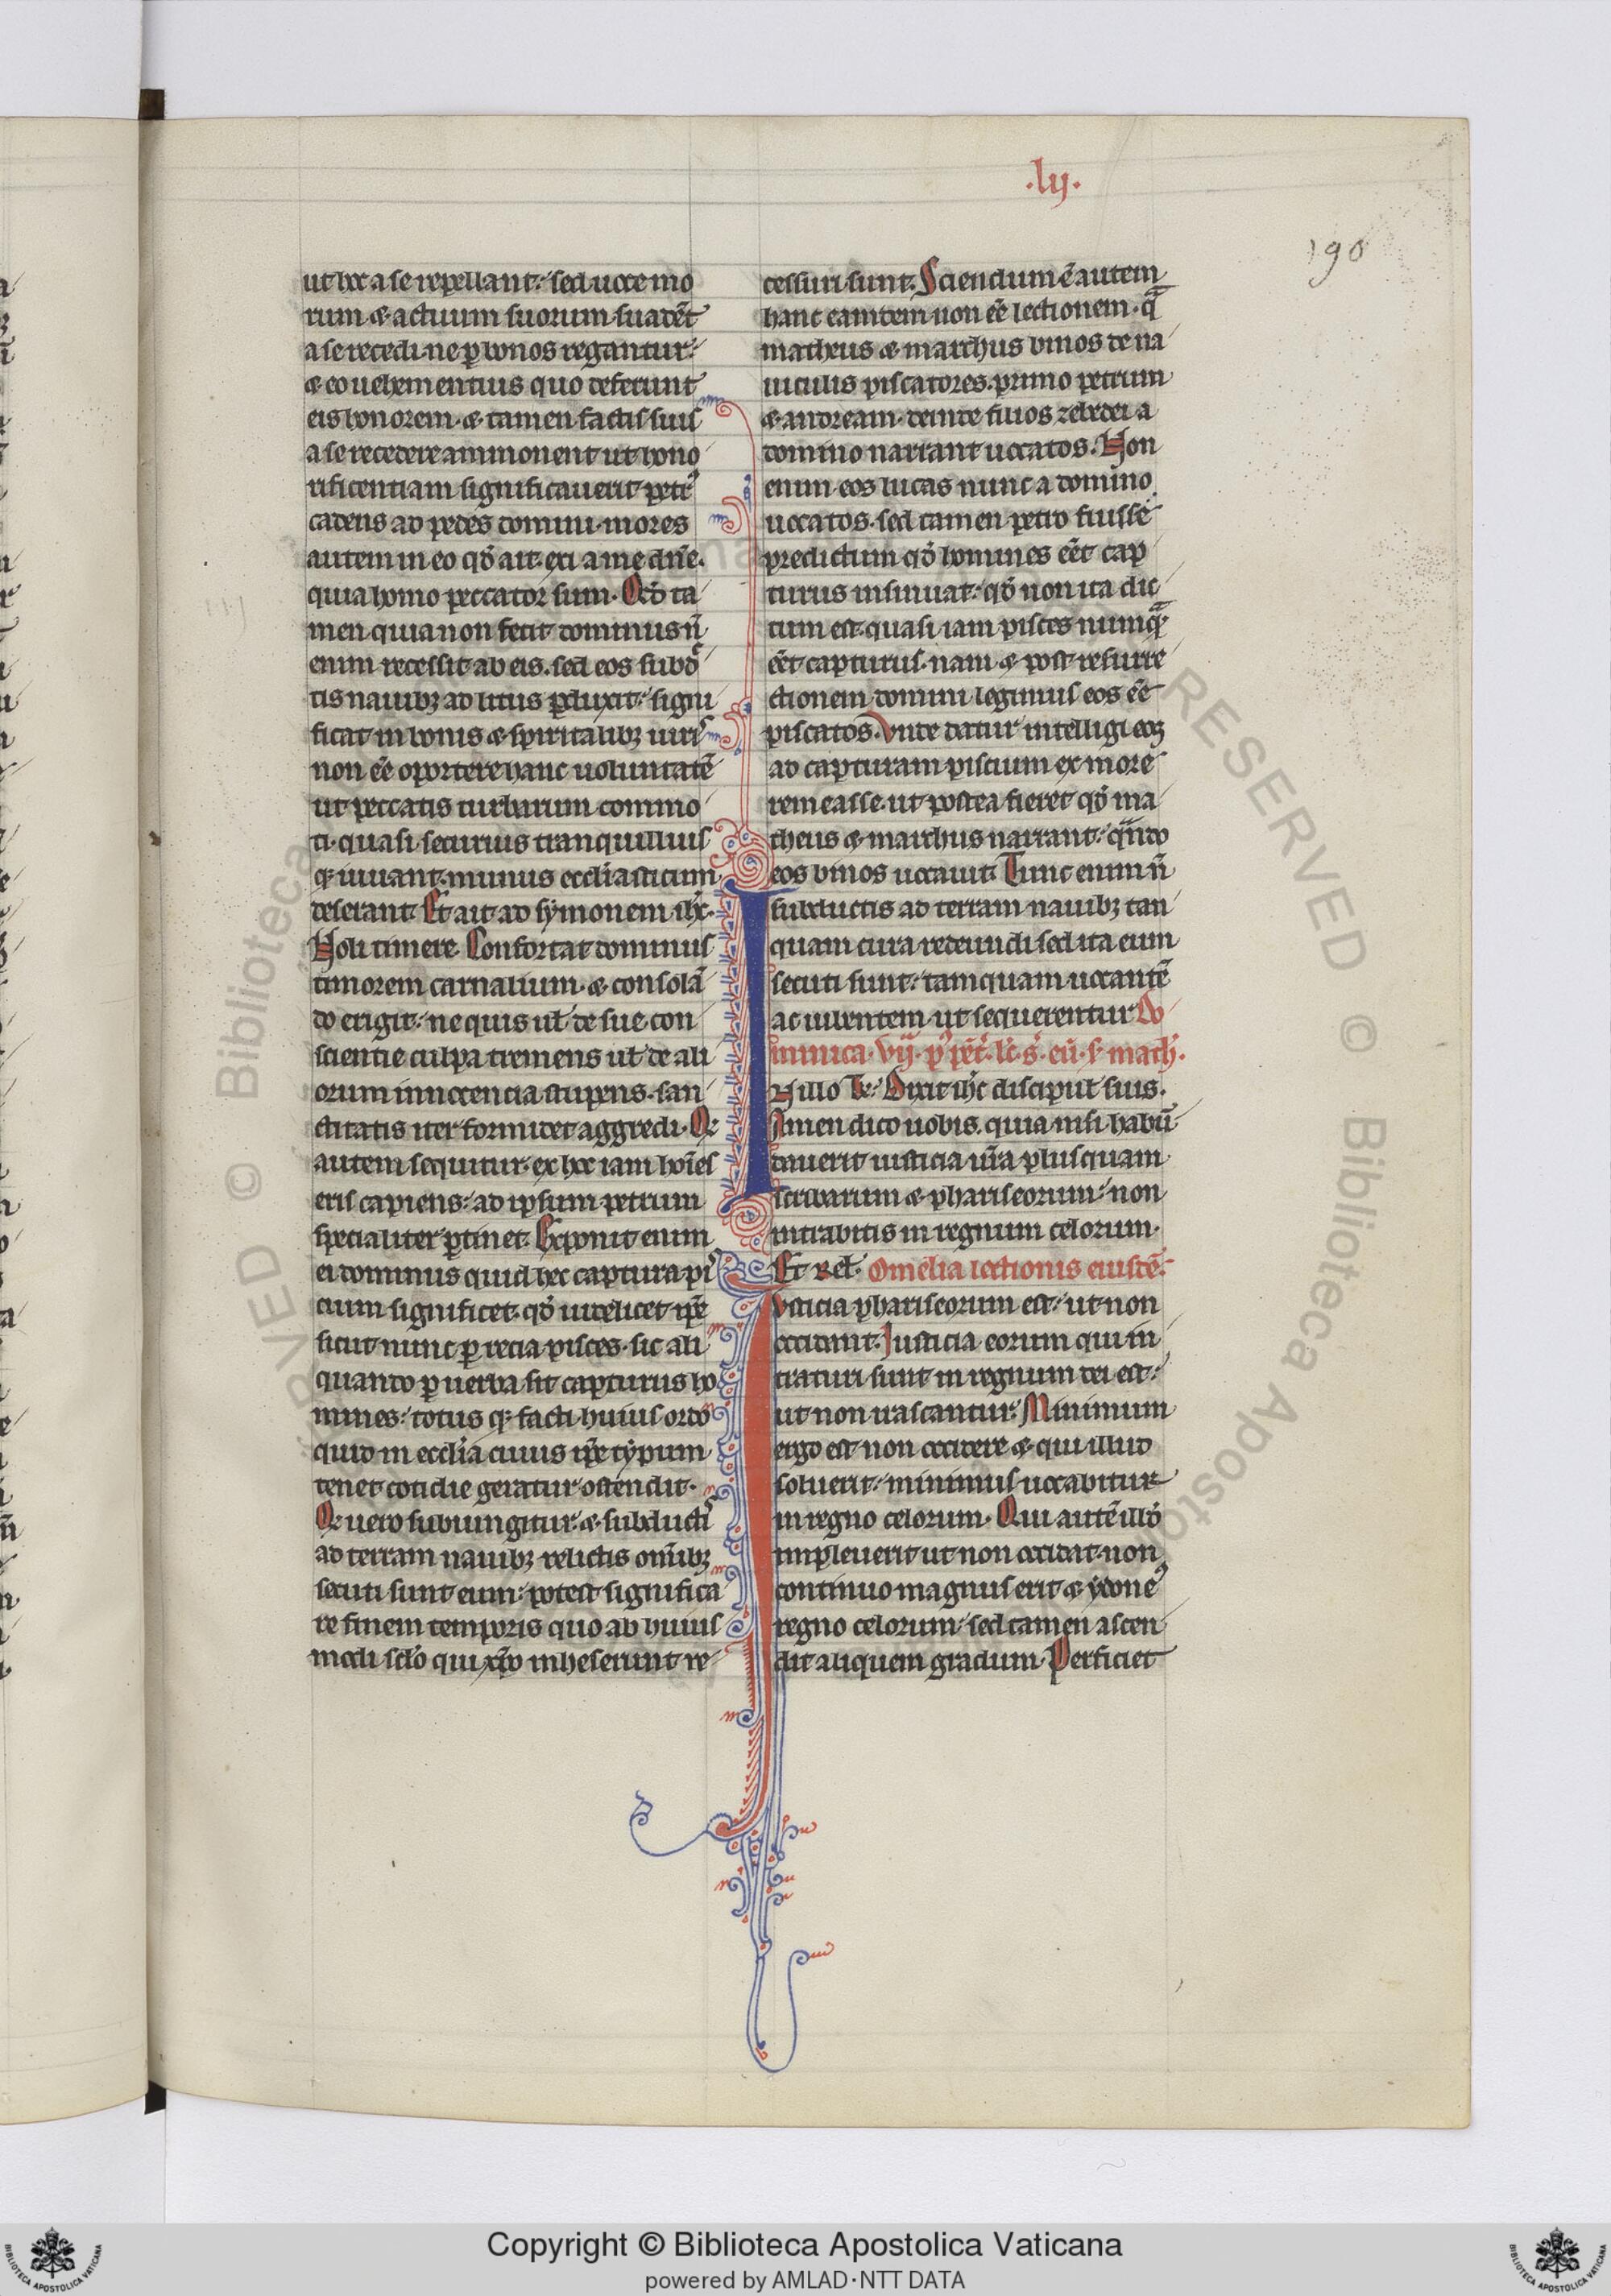 .lij.
190
ut hoc a se repellant: sed uoce mo
rum & actuum suorum suadēt
a se recedi. ne ꝑ bonos regantur:
& eo uehementius quo deferunt
eis honorem. & tamen factis suis
a se recedere ammonent ut hono
rificentiam significauerit petr᷒
cadens ad pedes domini. mores
autem in eo qđ ait. exi a me dn̄e.
quia homo peccator sum. Qđ ta
men quia non fecit dominus. n̄
enim recessit ab eis. sed eos subd᷒c
tis nauibꝫ ad litus ꝑduxit: signi
ficat in bonis & spiritalibꝫ uiris
non eē oportere hanc uoluntatē
ut peccatis turbarum commo
ti. quasi securius tranquillius
qꝫ uiuant. munus ecclīasticum
deserant. Et ait ad symonem ihc̄.
Noli timere. Confortat dominus
timorem carnalium. & consolā
do erigit: ne quis uł de sue con
scientie culpa tremens uł de ali
orum innocencia stupens. san
ctitatis iter formidet aggredi. Qđ
autem sequitur. ex hoc iam hoīes
eris capiens: ad ipsum petrum
specialiter ꝑtinet. Exponit enim
ei dominus quid hec captura pi
cium significet. qđ uidelicet ip̄e
sicut nunc ꝑ recia pisces. sic ali
quando ꝑ uerba sit capturus ho
mines: totus qꝫ facti huius ordo
quid in ecclīa cuius ip̄e typum
tenet cotidie geratur ostendit.
Qđ uero subiungitur. & subducti᷒
ad terram nauibꝫ relictis omībꝫ
secuti sunt eum: potest significa
re finem temporis quo ab huius
modi sclo qui xp̄o inheserunt re
cessuri sunt. Sciendum ē autem
hanc eamdem non eē lectionem. qͣ
matheus & marchus binos de na
uiculis piscatores. primo petrum
& andream. deinde filios zebedei a
domino narrant uocatos. Non
enim eos lucas nunc a domino
uocatos. sed tamen petro fuisse
predictum qđ homines eēt cap
turus insinuat: qđ non ita dic
tum est. quasi iam pisces numqͣ
eēt capturus. nam & post resurre
ctionem domini legimus eos eē
piscatos. Vnde datur intelligi eoꝫ
ad capturam piscium ex more
remeasse. ut postea fieret qđ ma
theus & marchus narrant: qn̄do
eos binos uocauit. Tunc enim n̄
subductis ad terram nauibꝫ tan
quam cura redeundi sed ita eum
secuti sunt: tamquam uocantē
ac iubentem ut sequerentur. Do
minica. vij. p᷒ pēt. lc̄. s. eū. s. math.
IN illo tꝑe: Dixit ihc̄ discipuł suis.
Amen dico uobis. quia nisi habū
dauerit iusticia ur̄a plusquam
scribarum & phariseorum: non
intrabitis in regnum celorum.
Et reł. Omelia lectionis eiusdē:
Iusticia phariseorum est: ut non
occidant. Iusticia eorum qui in
traturi sunt in regnum dei est:
ut non irascantur. Minimum
ergo est non occidere & qui illud
soluerit: minimus uocabitur
in regno celorum. Qui autē illđ
impleuerit ut non occidat. non
continuo magnus erit & ydone᷒
regno celorum: sed tamen ascen
dit aliquem gradum. Perficiet
Copyright © Biblioteca Apostolica Vaticana
powered by AMLAD·NTT DATA